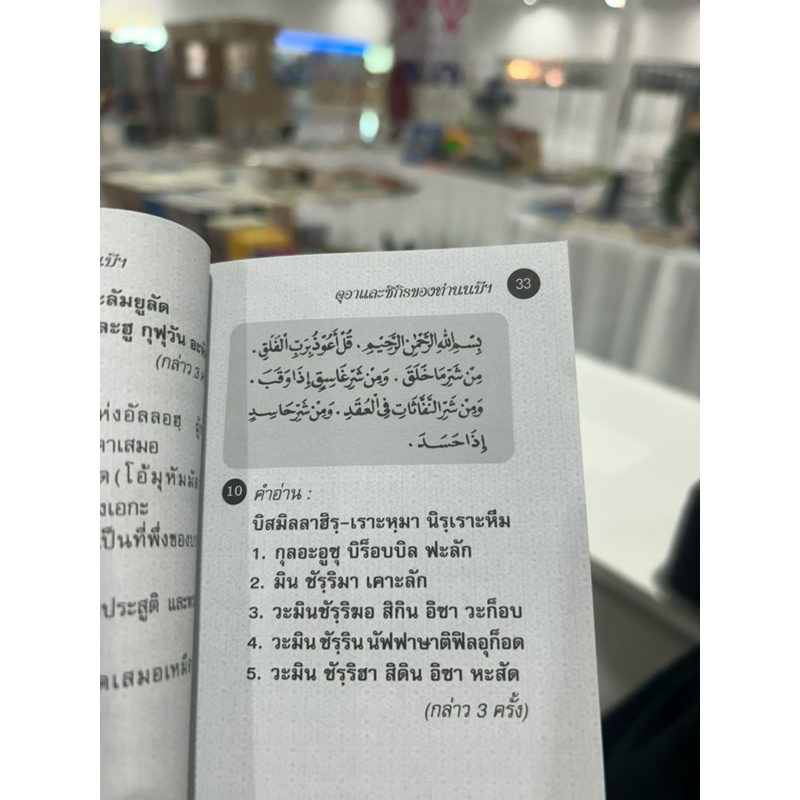 นบีฯ
ะลัมยูลัด
ละฮู กุฟุวัน
(กล่าว 3
ห่งอัลลอฮฺ
ตาเสมอ
ด (โอ้มุหัมมัด
งเอกะ
ป็นที่พึ่งของ
ประสูติ และ
ดเสมอเหมือ
ดุอาและซิกิรของท่านนบีฯ 33
بِسْمِ اللهِ الرَّحْمٰنِ الرَّحِيْمِ . قُلْ أَعُوْذُ بِرَبِّ الْفَلَقِ .
مِنْ شَرِّ مَا خَلَقَ . وَمِنْ شَرِّ غَاسِقٍ إِذَا وَقَبَ .
وَمِنْ شَرِّ النَّفَّاثَاتِ فِي الْعُقَدِ . وَمِنْ شَرِّ حَاسِدٍ
إِذَا حَسَدَ .
10 คำอ่าน :
บิสมิลลาฮิรฺ-เราะหฺมา นิรฺเราะหีม
1. กุลอะอูซุ บิร็อบบิล ฟะลัก
2. มิน ชัรฺริมา เคาะลัก
3. วะมินชัรฺริฆอ สิกิน อิซา วะก็อบ
4. วะมิน ชัรฺริน นัฟฟาษาติฟิลอุก็อด
5. วะมิน ชัรฺริฮา สิดิน อิซา หะสัด
(กล่าว 3 ครั้ง)